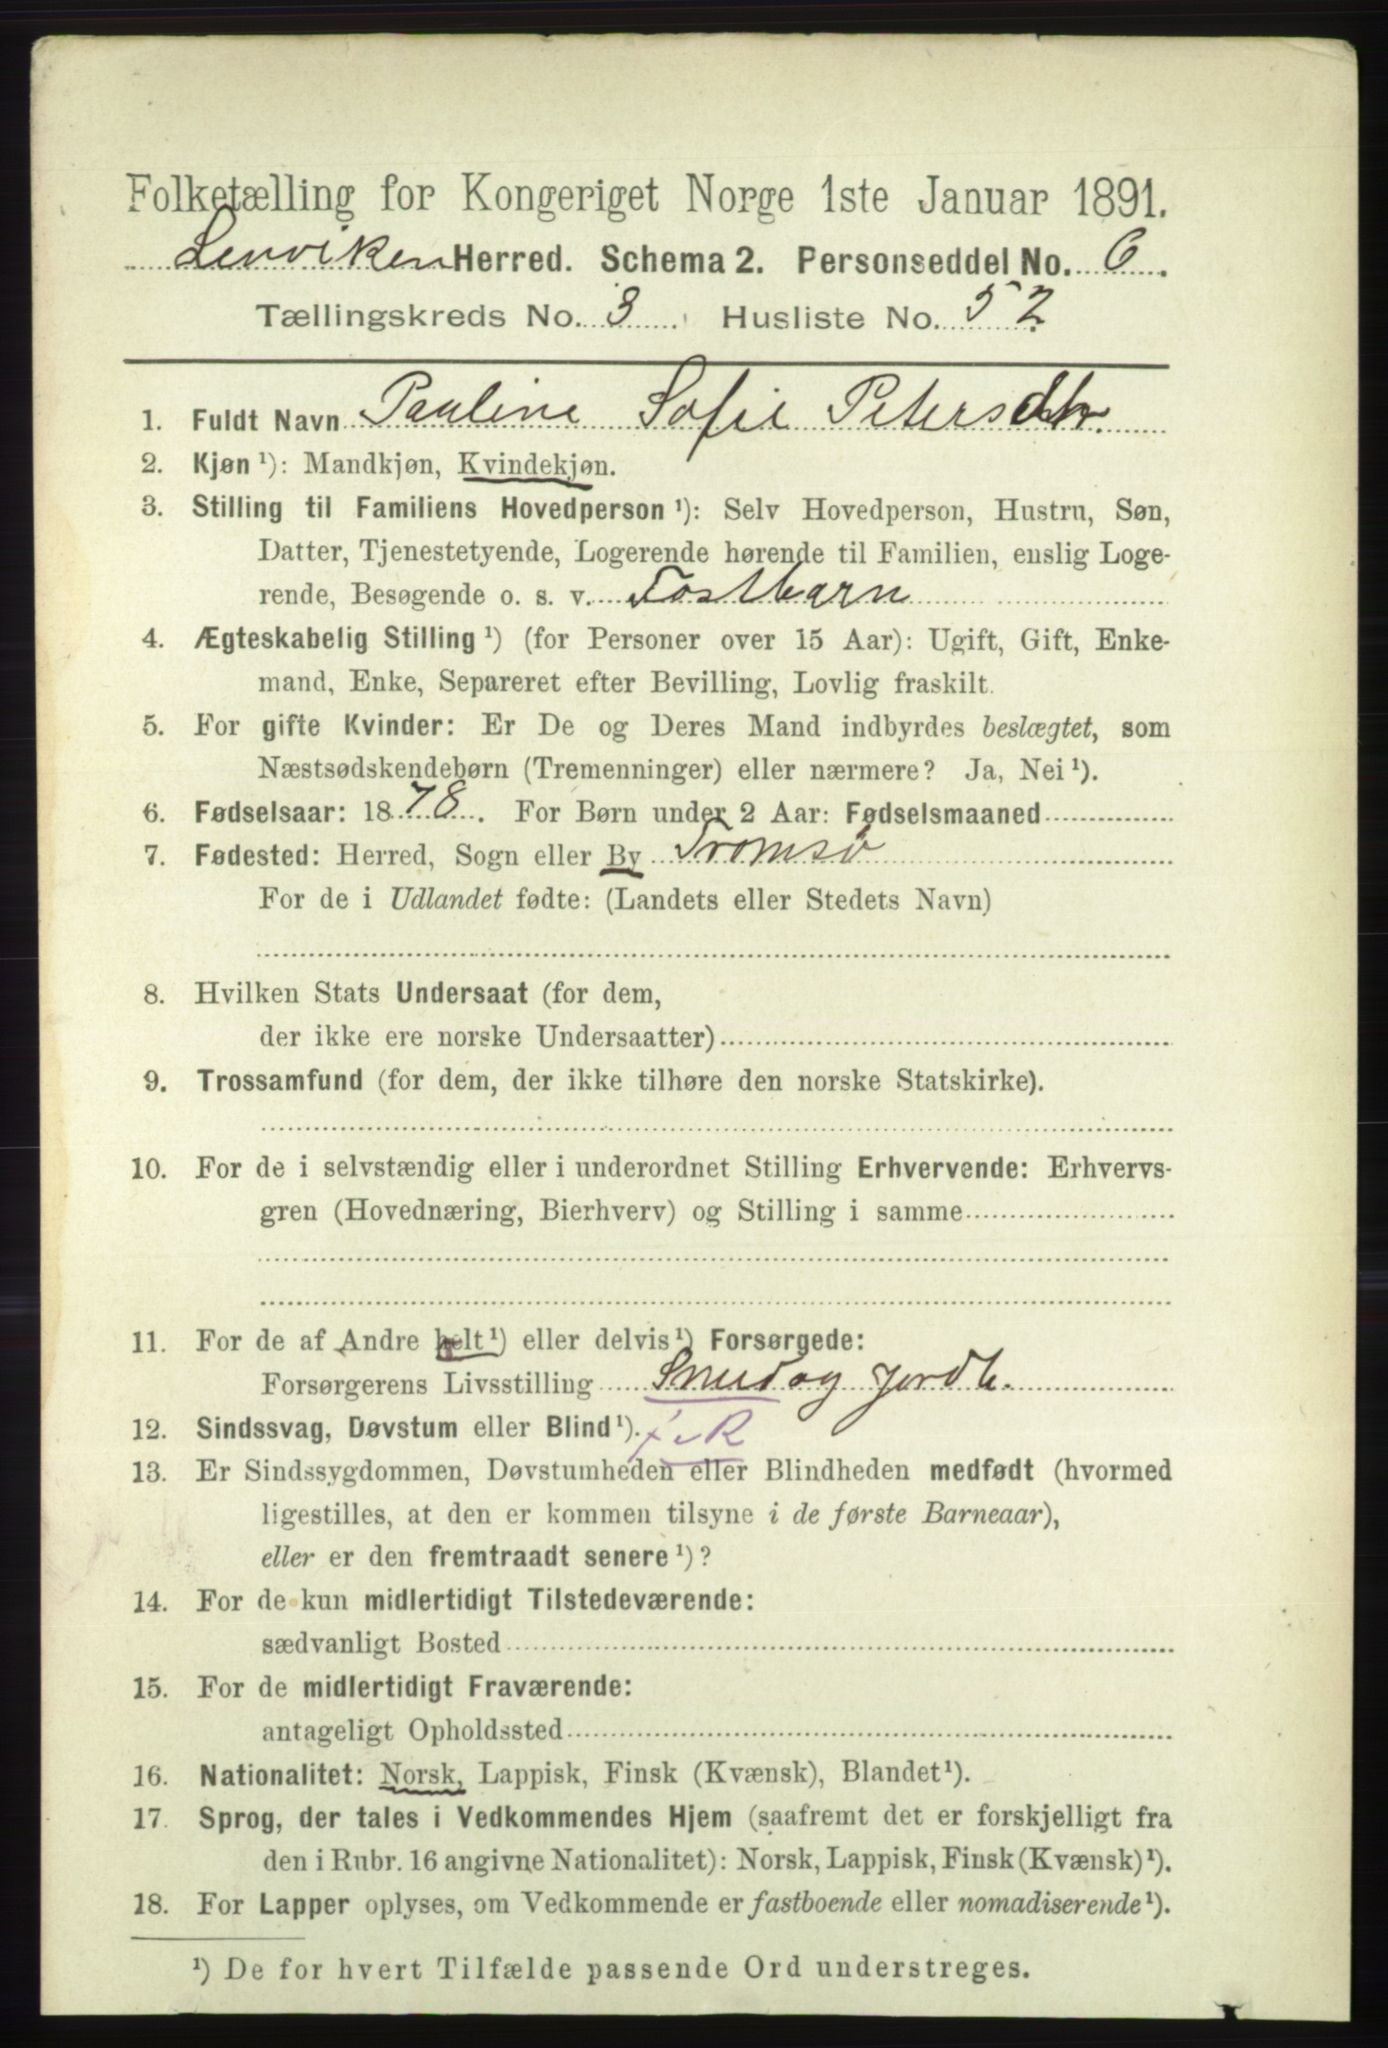 Folketælling for Kongeriget Norge 1ste Januar 1891.
Lenviken Herred. Schema 2. Personseddel No. 6.
Tællingskreds No. 3 Husliste No. 52
1. Fuldt Navn Pauline Sofie Petersdtr.
2. Kjøn ¹): Mandkjøn, Kvindekjøn.
3. Stilling til Familiens Hovedperson ¹): Selv Hovedperson, Hustru, Søn,
Datter, Tjenestetyende, Logerende hørende til Familien, enslig Loge-
rende, Besøgende o. s. v. Fostbarn
4. Ægteskabelig Stilling ¹) (for Personer over 15 Aar): Ugift, Gift, Enke-
mand, Enke, Separeret efter Bevilling, Lovlig fraskilt.
5. For gifte Kvinder: Er De og Deres Mand indbyrdes beslægtet, som
Næstsødskendebørn (Tremenninger) eller nærmere? Ja, Nei ¹).
6. Fødselsaar: 1878. For Børn under 2 Aar: Fødselsmaaned
7. Fødested: Herred, Sogn eller By Tromsø
For de i Udlandet fødte: (Landets eller Stedets Navn)
8. Hvilken Stats Undersaat (for dem,
der ikke ere norske Undersaatter)
9. Trossamfund (for dem, der ikke tilhøre den norske Statskirke).
10. For de i selvstændig eller i underordnet Stilling Erhvervende: Erhvervs-
gren (Hovednæring, Bierhverv) og Stilling i samme
11. For de af Andre helt ¹) eller delvis ¹) Forsørgede:
Forsørgerens Livsstilling Smed og Jordb.
12. Sindssvag, Døvstum eller Blind ¹).
13. Er Sindssygdommen, Døvstumheden eller Blindheden medfødt (hvormed
ligestilles, at den er kommen tilsyne i de første Barneaar),
eller er den fremtraadt senere ¹)?
14. For de kun midlertidigt Tilstedeværende:
sædvanligt Bosted
15. For de midlertidigt Fraværende:
antageligt Opholdssted
16. Nationalitet: Norsk, Lappisk, Finsk (Kvænsk), Blandet ¹).
17. Sprog, der tales i Vedkommendes Hjem (saafremt det er forskjelligt fra
den i Rubr. 16 angivne Nationalitet): Norsk, Lappisk, Finsk (Kvænsk) ¹).
18. For Lapper oplyses, om Vedkommende er fastboende eller nomadiserende ¹).
¹) De for hvert Tilfælde passende Ord understreges.